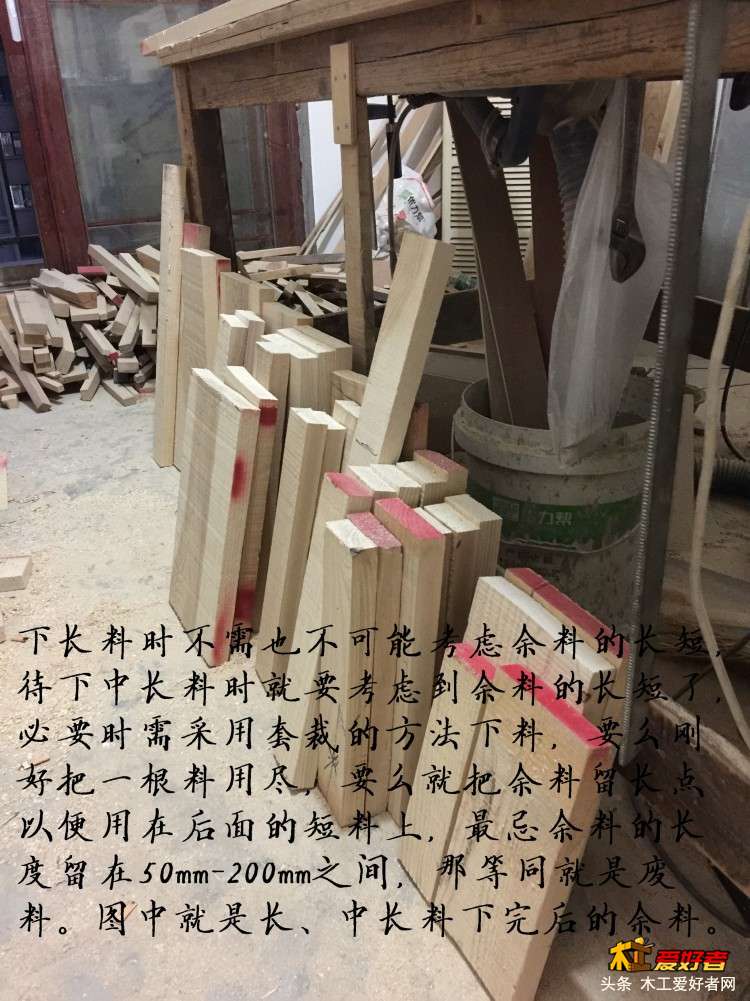 优力帮
力帮
下长料时不需也不可能考虑余料的长短，
待下中长料时就要考虑到余料的长短了，
必要时需采用套裁的方法下料，要么刚
好把一根料用尽，要么就把余料留长点
以便用在后面的短料上，最忌余料的长
度留在50mm-200mm之间，那等同就是废
料。图中就是长、中长料下完后的余料。
木工爱好者
头条 木工爱好者网